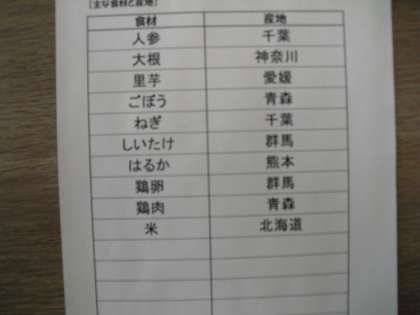 [主な食材と産地]
食材 産地
人参 千葉
大根 神奈川
里芋 愛媛
ごぼう 青森
ねぎ 千葉
しいたけ 群馬
はるか 熊本
鶏卵 群馬
鶏肉 青森
米 北海道